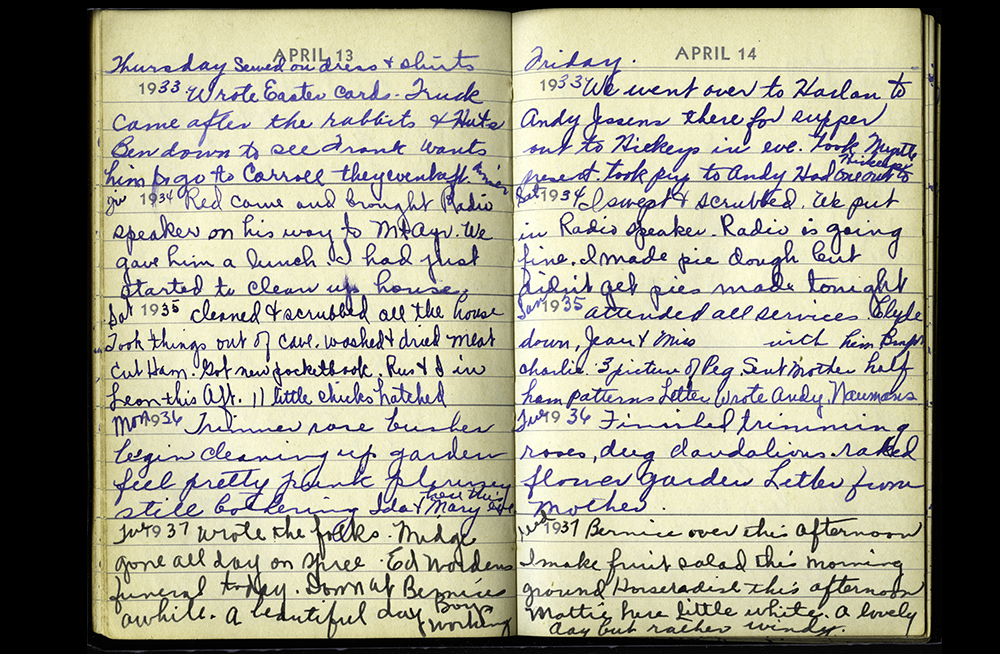 APRIL 13
Thursday Sewed on dress & shirts
1933 Wrote Easter Cards. Truck
came after the rabbits & Huts
Ben down to see Frank wants
him to go to Carroll they went aft.
1934 Red came and brought Radio
speaker on his way to Mt Ayr. We
gave him a lunch. I had just
started to clean up house.
Sat 1935 cleaned & scrubbed all the house
Took things out of cave. washed & dried meat
cut Ham. Got new pocketbook. Rus & I in
Leon this Aft. 11 little chicks hatched
Mon 1936 Trimmer rose bushes
begin cleaning up garden
feel pretty punk
still bothering Ida & Mary here this eve
Tue 1937 wrote the folks. Midge
gone all day on spree. Ed Wordens
funeral today. Down at Bernices
awhile. A beautiful day Boys
working
APRIL 14
Friday.
1933 We went over to Harlan to
Andy Jssens there for supper
out to Hickeys in eve. Took Myrtle Hickeys
present. Took pig to Andy Had
Sat 1934 I swept & scrubbed. We put
in Radio speaker. Radio is going
fine. I made pie dough but
didn't get pies made tonight
1935 attended all services. Clyde
down, Jean & Miss with him
charlie. 3 picture of Peg. Sent Mother half
ham patterns Letter Wrote Andy, Naumans
Tue 1936 Finished trimming
roses, dug dandalions. raked
flower garden Letter from
Mother.
Wed 1937 Bernice over this afternoon
I make fruit salad this morning
ground Horseradish this afternoon
Mattie here little while. A lovely
day but rather windy.